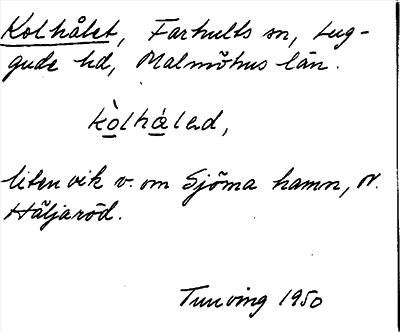 Kolhålet, Farhults sn, Lug-
gude hd, Malmöhus län.
kòlhåled,
liten vik v. om Sjöma hamn, N.
Häljaröd.
Tunving 1950